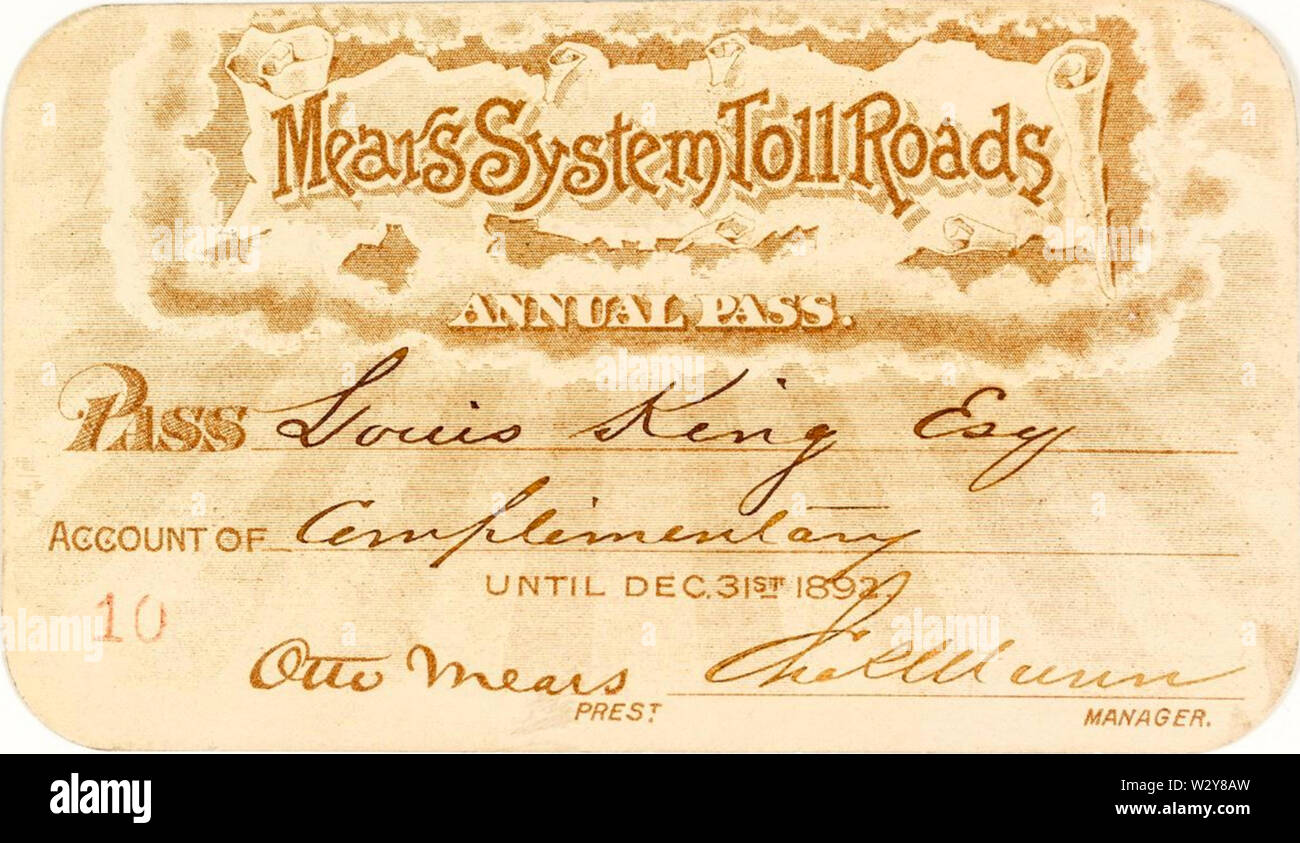 Mears System Toll Roads
ANNUAL PASS.
PASS Louis King Esq
ACCOUNT OF Complimentary
UNTIL DEC. 31ST 1892.
10
Otto Mears
PREST MANAGER.
alamy
Image ID: W2Y8AW
www.alamy.com